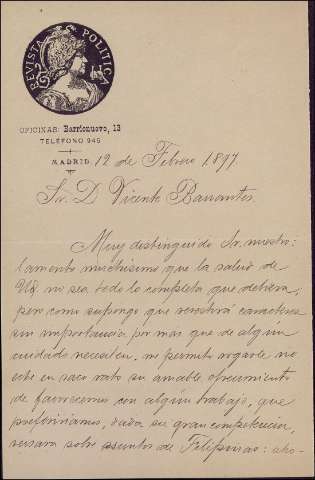 REVISTA POLITICA
OFICINAS: Barrionuevo, 13
TELÉFONO 945
MADRID 12 de Febrero 1897.
Sr. D. Vicente Barrantes.
Muy distinguido Sr. nuestro:
lamento muchísimo que la salud de
Vd. no sea todo lo completa que debiera;
pero como supongo que revestirá caracteres
sin importancia por más que de algún
cuidado necesiten, me permito rogarle no
eche en saco roto su amable ofrecimiento
de favorecernos con algún trabajo, que
preferiríamos, dada su gran competencia,
versara sobre asuntos de Filipinas: aho-